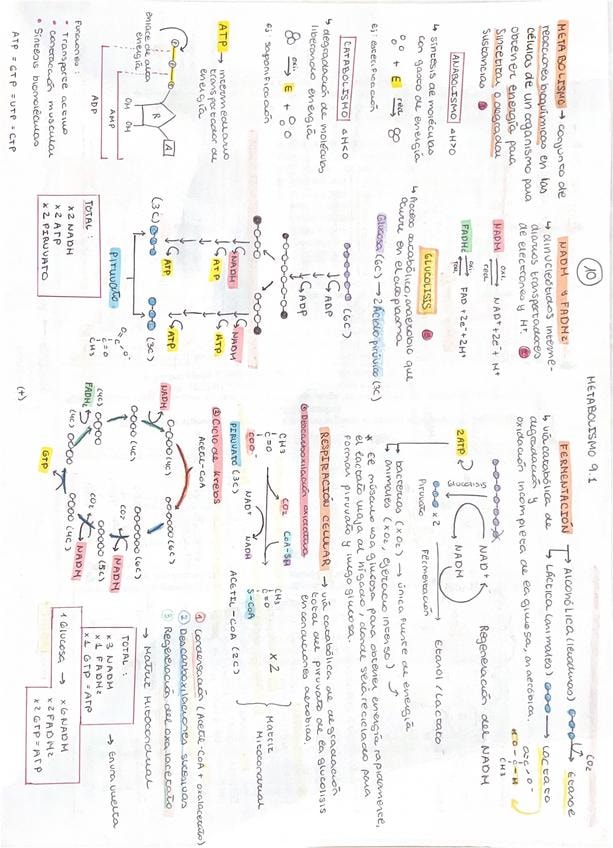 METABOLISMO 9.1
10
METABOLISMO → conjunto de
reacciones bioquímicas en las
células de un organismo para
obtener energía para
sintetizar o degradar
sustancias E
ANABOLISMO ΔH>0
↳ síntesis de moléculas
con gasto de energía
+ E red
ej: esterificación
CATABOLISMO ΔH<0
↳ degradación de moléculas
liberando energía
oxi E +
ej: saponificación
ATP → intermediario
transportador de
energía
enlace de alta
energía
P P P
R
A
OH OH
AMP
ADP
Funciones:
• Transporte activo
• contracción muscular
• Síntesis biomoléculas
ATP = GTP = UTP = CTP
NADH y FADH₂
↳ dinucleótidos interme-
diarios transportadores
de electrones y H⁺. E
NADH oxi red NAD⁺ + 2e⁻ + H⁺
FADH₂ oxi red FAD + 2e⁻ + 2H⁺
GLUCOLISIS E
↳ Proceso catabólico, anaerobio que
ocurre en el citoplasma
Glucosa (6C) → 2 Ácido pirúvico (3C)
(6C)
ADP
ADP
NADH NADH
ATP ATP
ATP ATP
(3C) (3C)
Piruvato
CH₃
TOTAL:
x 2 NADH
x 2 ATP
x 2 PIRUVATO
FERMENTACIÓN → Alcohólica (levaduras) → Etanol
CO₂
↳ Láctica (animales) → Lactato
↳ vía catabólica de
degradación y
oxidación incompleta de la glucosa, anaeróbica.
CH₃
2 ATP
Glucolisis
NAD⁺
NADH
Regeneración del NADH
2
Piruvato
Fermentación
Etanol / Lactato
↳ bacterias (xO₂) → única fuente de energía
↳ animales (xO₂, ejercicio intenso)
* El músculo usa glucosa para obtener energía rápidamente,
el lactato viaja al hígado, donde será reciclado para
formar piruvato y luego glucosa.
RESPIRACIÓN CELULAR → vía catabólica de degradación
total del piruvato de la glucolisis
en condiciones aerobias.
① Descarboxilación oxidativa
CH₃
C=O
COO⁻
PIRUVATO (3C)
CO₂
CoA-SH
NAD⁺
NADH
CH₃
C=O
S-CoA
ACETIL-CoA (2C)
x2
Matriz
Mitocondrial
② Ciclo de Krebs
ACETIL-CoA
(4C)
(6C)
(6C)
CO₂
NADH
(5C)
CO₂
NADH
(4C)
GTP
(4C)
FADH₂
(4C)
NADH
(+)
① condensación (Acetil-CoA + oxalacetato)
② Descarboxilaciones sucesivas
③ Regeneración del oxalacetato
→ Matriz Mitocondrial
TOTAL:
x 3 NADH
x 1 FADH₂
x 1 GTP = ATP
→ En una vuelta
1 Glucosa → x 6 NADH
x 2 FADH₂
x 2 GTP = ATP